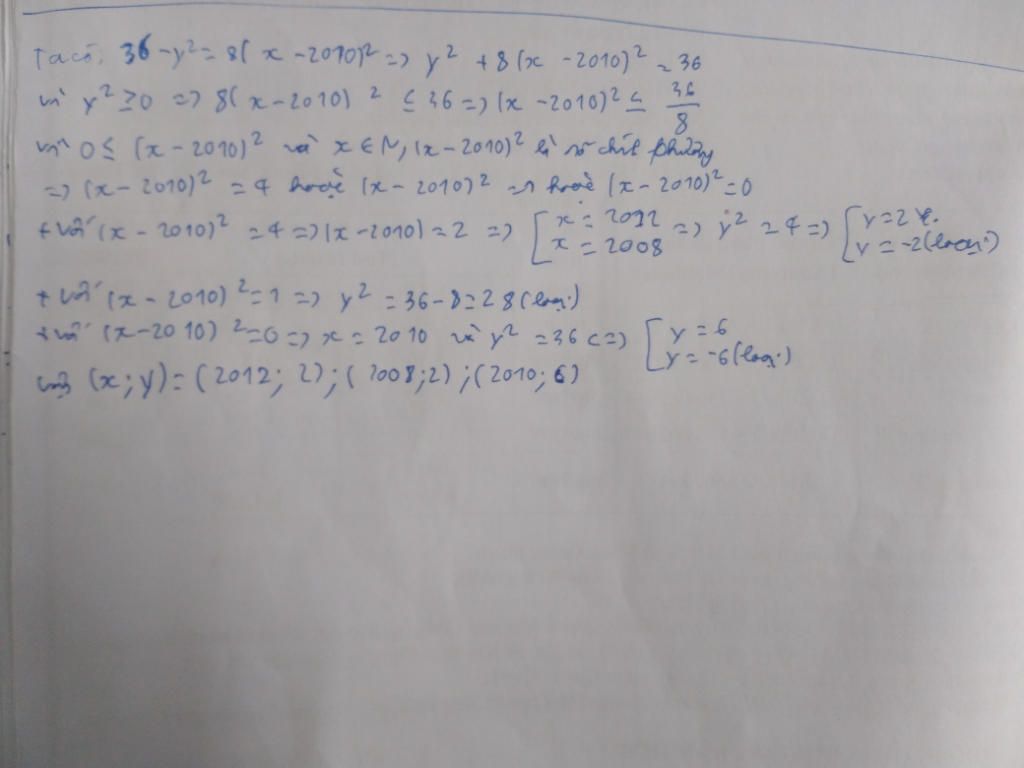 Ta có: 36 - y² = 8(x - 2010)² => y² + 8(x - 2010)² = 36
vì y² ≥ 0 => 8(x - 2010)² ≤ 36 => (x - 2010)² ≤ 36/8
vì 0 ≤ (x - 2010)² và x ∈ N, (x - 2010)² là số chính phương
=> (x - 2010)² = 4 hoặc (x - 2010)² = 1 hoặc (x - 2010)² = 0
+ với (x - 2010)² = 4 => |x - 2010| = 2 => [ x = 2012 x = 2008 => y² = 4 => [ y = 2 y = -2 (loại)
+ với (x - 2010)² = 1 => y² = 36 - 8 = 28 (loại)
+ với (x - 2010)² = 0 => x = 2010 và y² = 36 <=> [ y = 6 y = -6 (loại)
vậy (x; y) = (2012; 2); (2008; 2); (2010; 6)